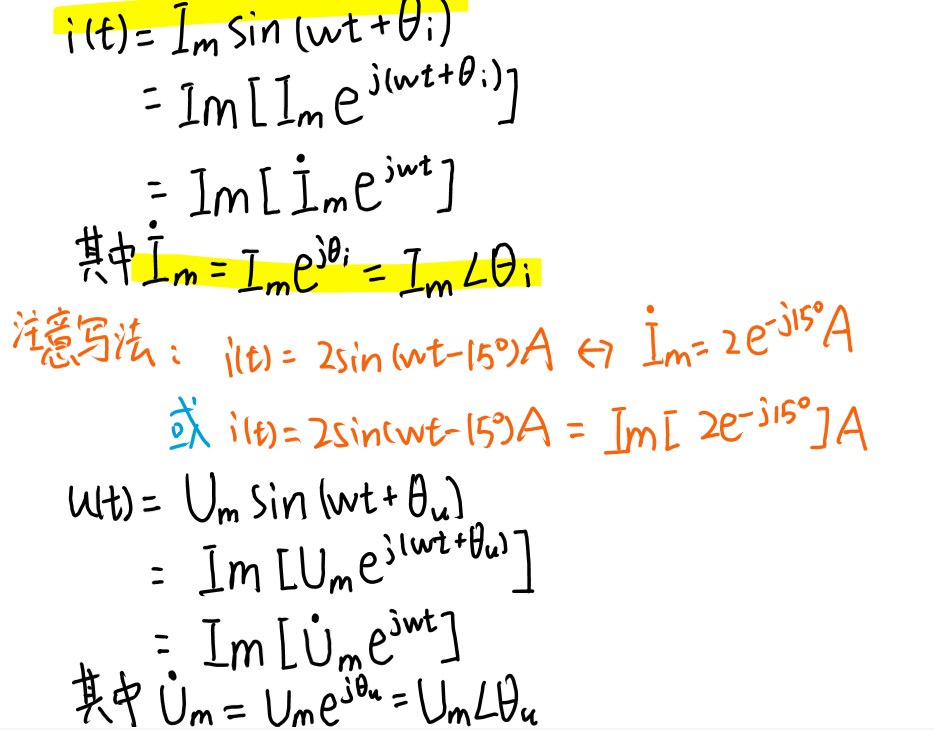 i(t) = Iₘ sin(wt+θᵢ)
= Im[Iₘe^{j(wt+θᵢ)}]
= Im[İₘe^{jwt}]
其中 İₘ = Iₘe^{jθᵢ} = Iₘ∠θᵢ
注意写法: i(t) = 2sin(wt-15°)A ↔ İₘ = 2e^{-j15°}A
或 i(t) = 2sin(wt-15°)A = Im[2e^{-j15°}]A
u(t) = Uₘ sin(wt+θᵤ)
= Im[Uₘe^{j(wt+θᵤ)}]
= Im[U̇ₘe^{jwt}]
其中 U̇ₘ = Uₘe^{jθᵤ} = Uₘ∠θᵤ